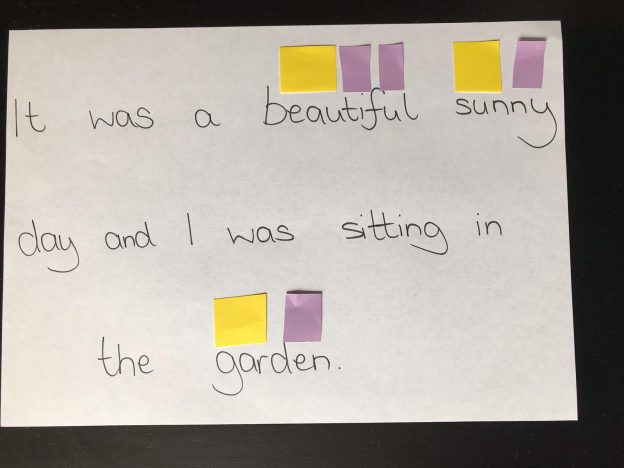 It was a beautiful sunny
day and I was sitting in
the garden.